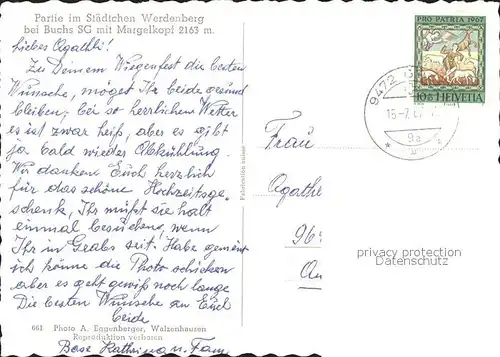 Partie im Städtchen Werdenberg
bei Buchs SG mit Margelkopf 2163 m.
Liebes Agathli!
Zu Deinem Wiegenfest die besten
Wünsche, möget Ihr beide gesund
bleiben, bei so herrlichem Wetter
es ist zwar heiß, aber es gibt
ja bald wieder Abkühlung.
Wir danken Euch herzlich
für das schöne Hochzeitsge-
schenk, Ihr müßt sie halt
einmal besuchen, wenn
Ihr in Grabs seit. Habe gemeint
ich könne die Photo schicken
aber es geht gewiß noch lange
Die besten Wünsche an Euch
beide
661 Photo A. Eggenberger, Walzenhausen
Reproduktion verboten
Base Kathrina u. Fam.
Fabrication suisse
PRO PATRIA 1967
10+ HELVETIA
9472
15-7
9a
Frau
Agathe
96
privacy protection
Datenschutz